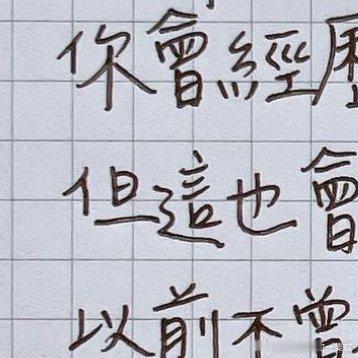 你會經歷
但這也會
以前不曾